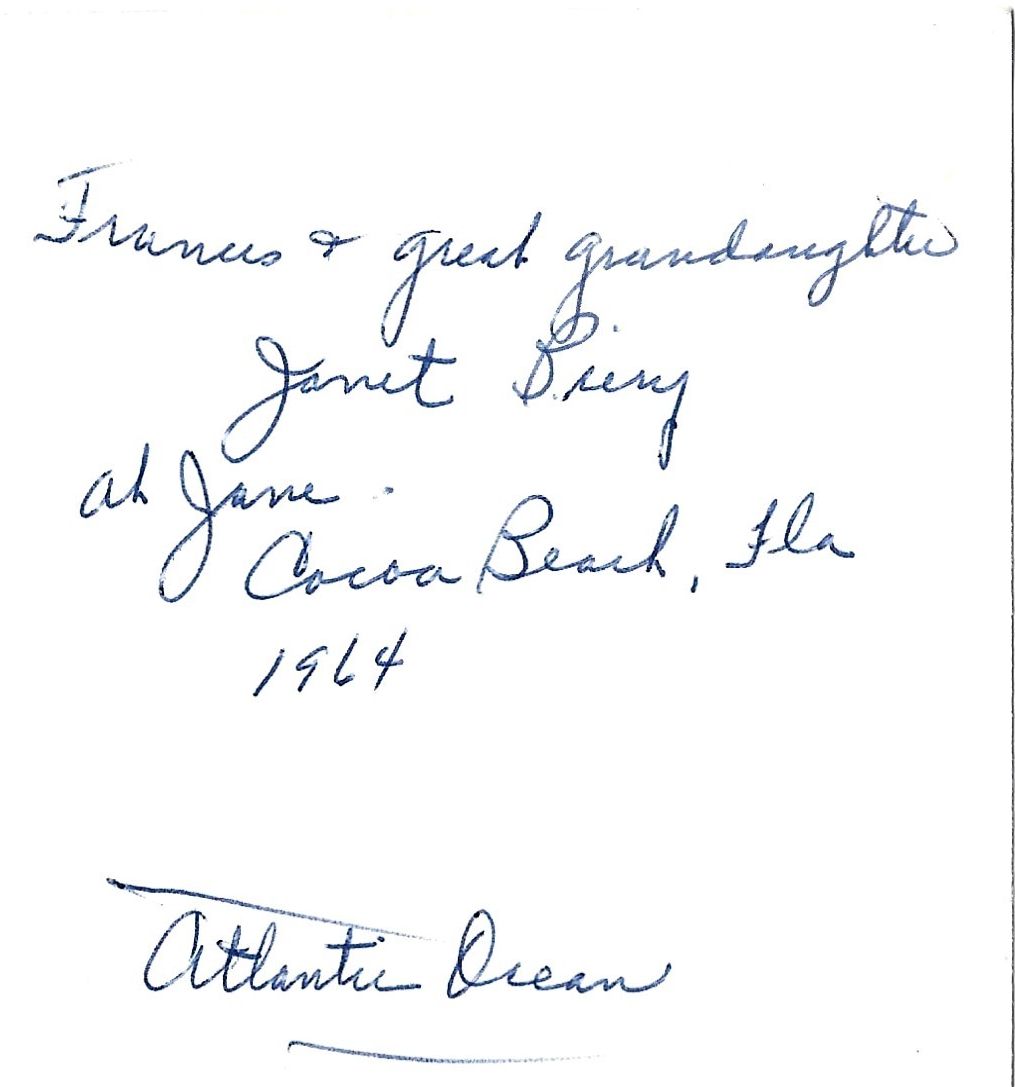 Frances & great grandaughter
Janet
at Jane
Cocoa Beach, Fla
1964
Atlantic Ocean